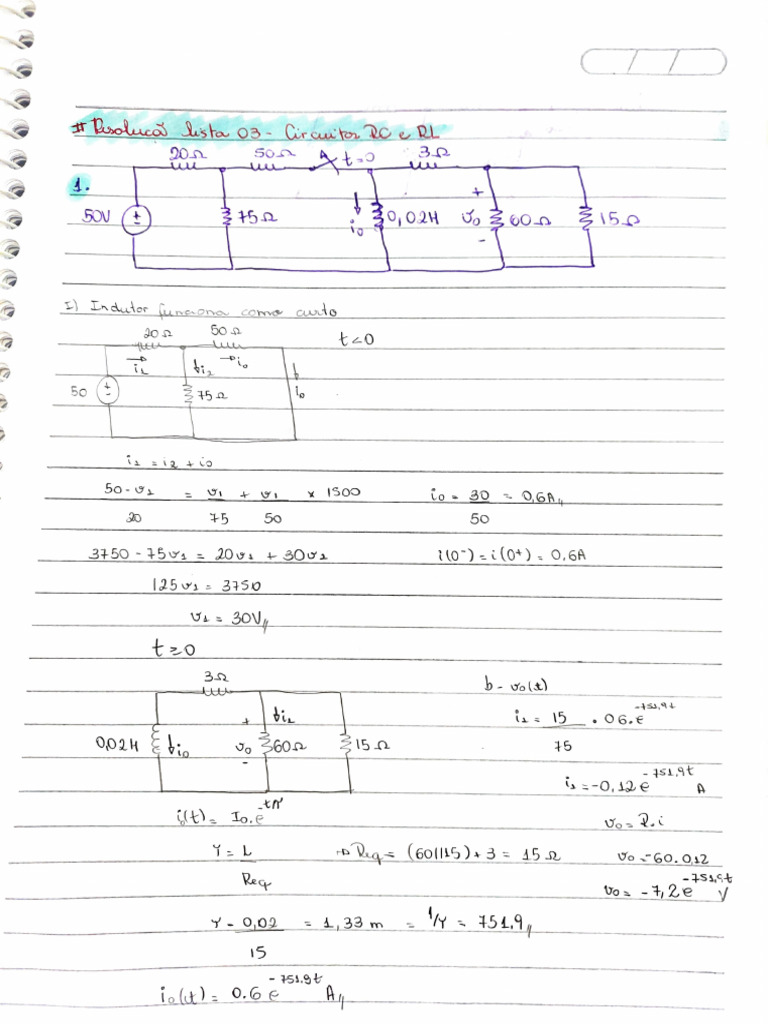 # Resolucã lista 03 - Circuitos RC e RL
20Ω 50Ω A t=0 3Ω
1.
50V ± 75Ω i₀ 0,02H + v₀ - 60Ω 15Ω
I) Indutor funciona como curto
20Ω 50Ω t<0
i₁ i₂ i₀
50 ± 75Ω i₀
i₁ = i₂ + i₀
50 - v₁ / 20 = v₁ / 75 + v₁ / 50 × 1500 i₀ = 30 / 50 = 0,6A//
3750 - 75v₁ = 20v₁ + 30v₁ i(0⁻) = i(0⁺) = 0,6A
125v₁ = 3750
v₁ = 30V//
t ≥ 0
3Ω b - v₀(t)
0,02H i₀ + v₀ - i₁ 60Ω 15Ω
i₁ = 15 / 75 . 06.e^-751,9t
i₁ = -0,12e^-751,9t A
i₀(t) = I₀.e^-t/γ v₀ = R.i
γ = L / Req → Req = (60||15) + 3 = 15Ω v₀ = -60.0,12
v₀ = -7,2e^-751,9t V
γ - 0,02 / 15 = 1,33m = 1/γ = 751,9//
i₀(t) = 0.6e^-751.9t A//